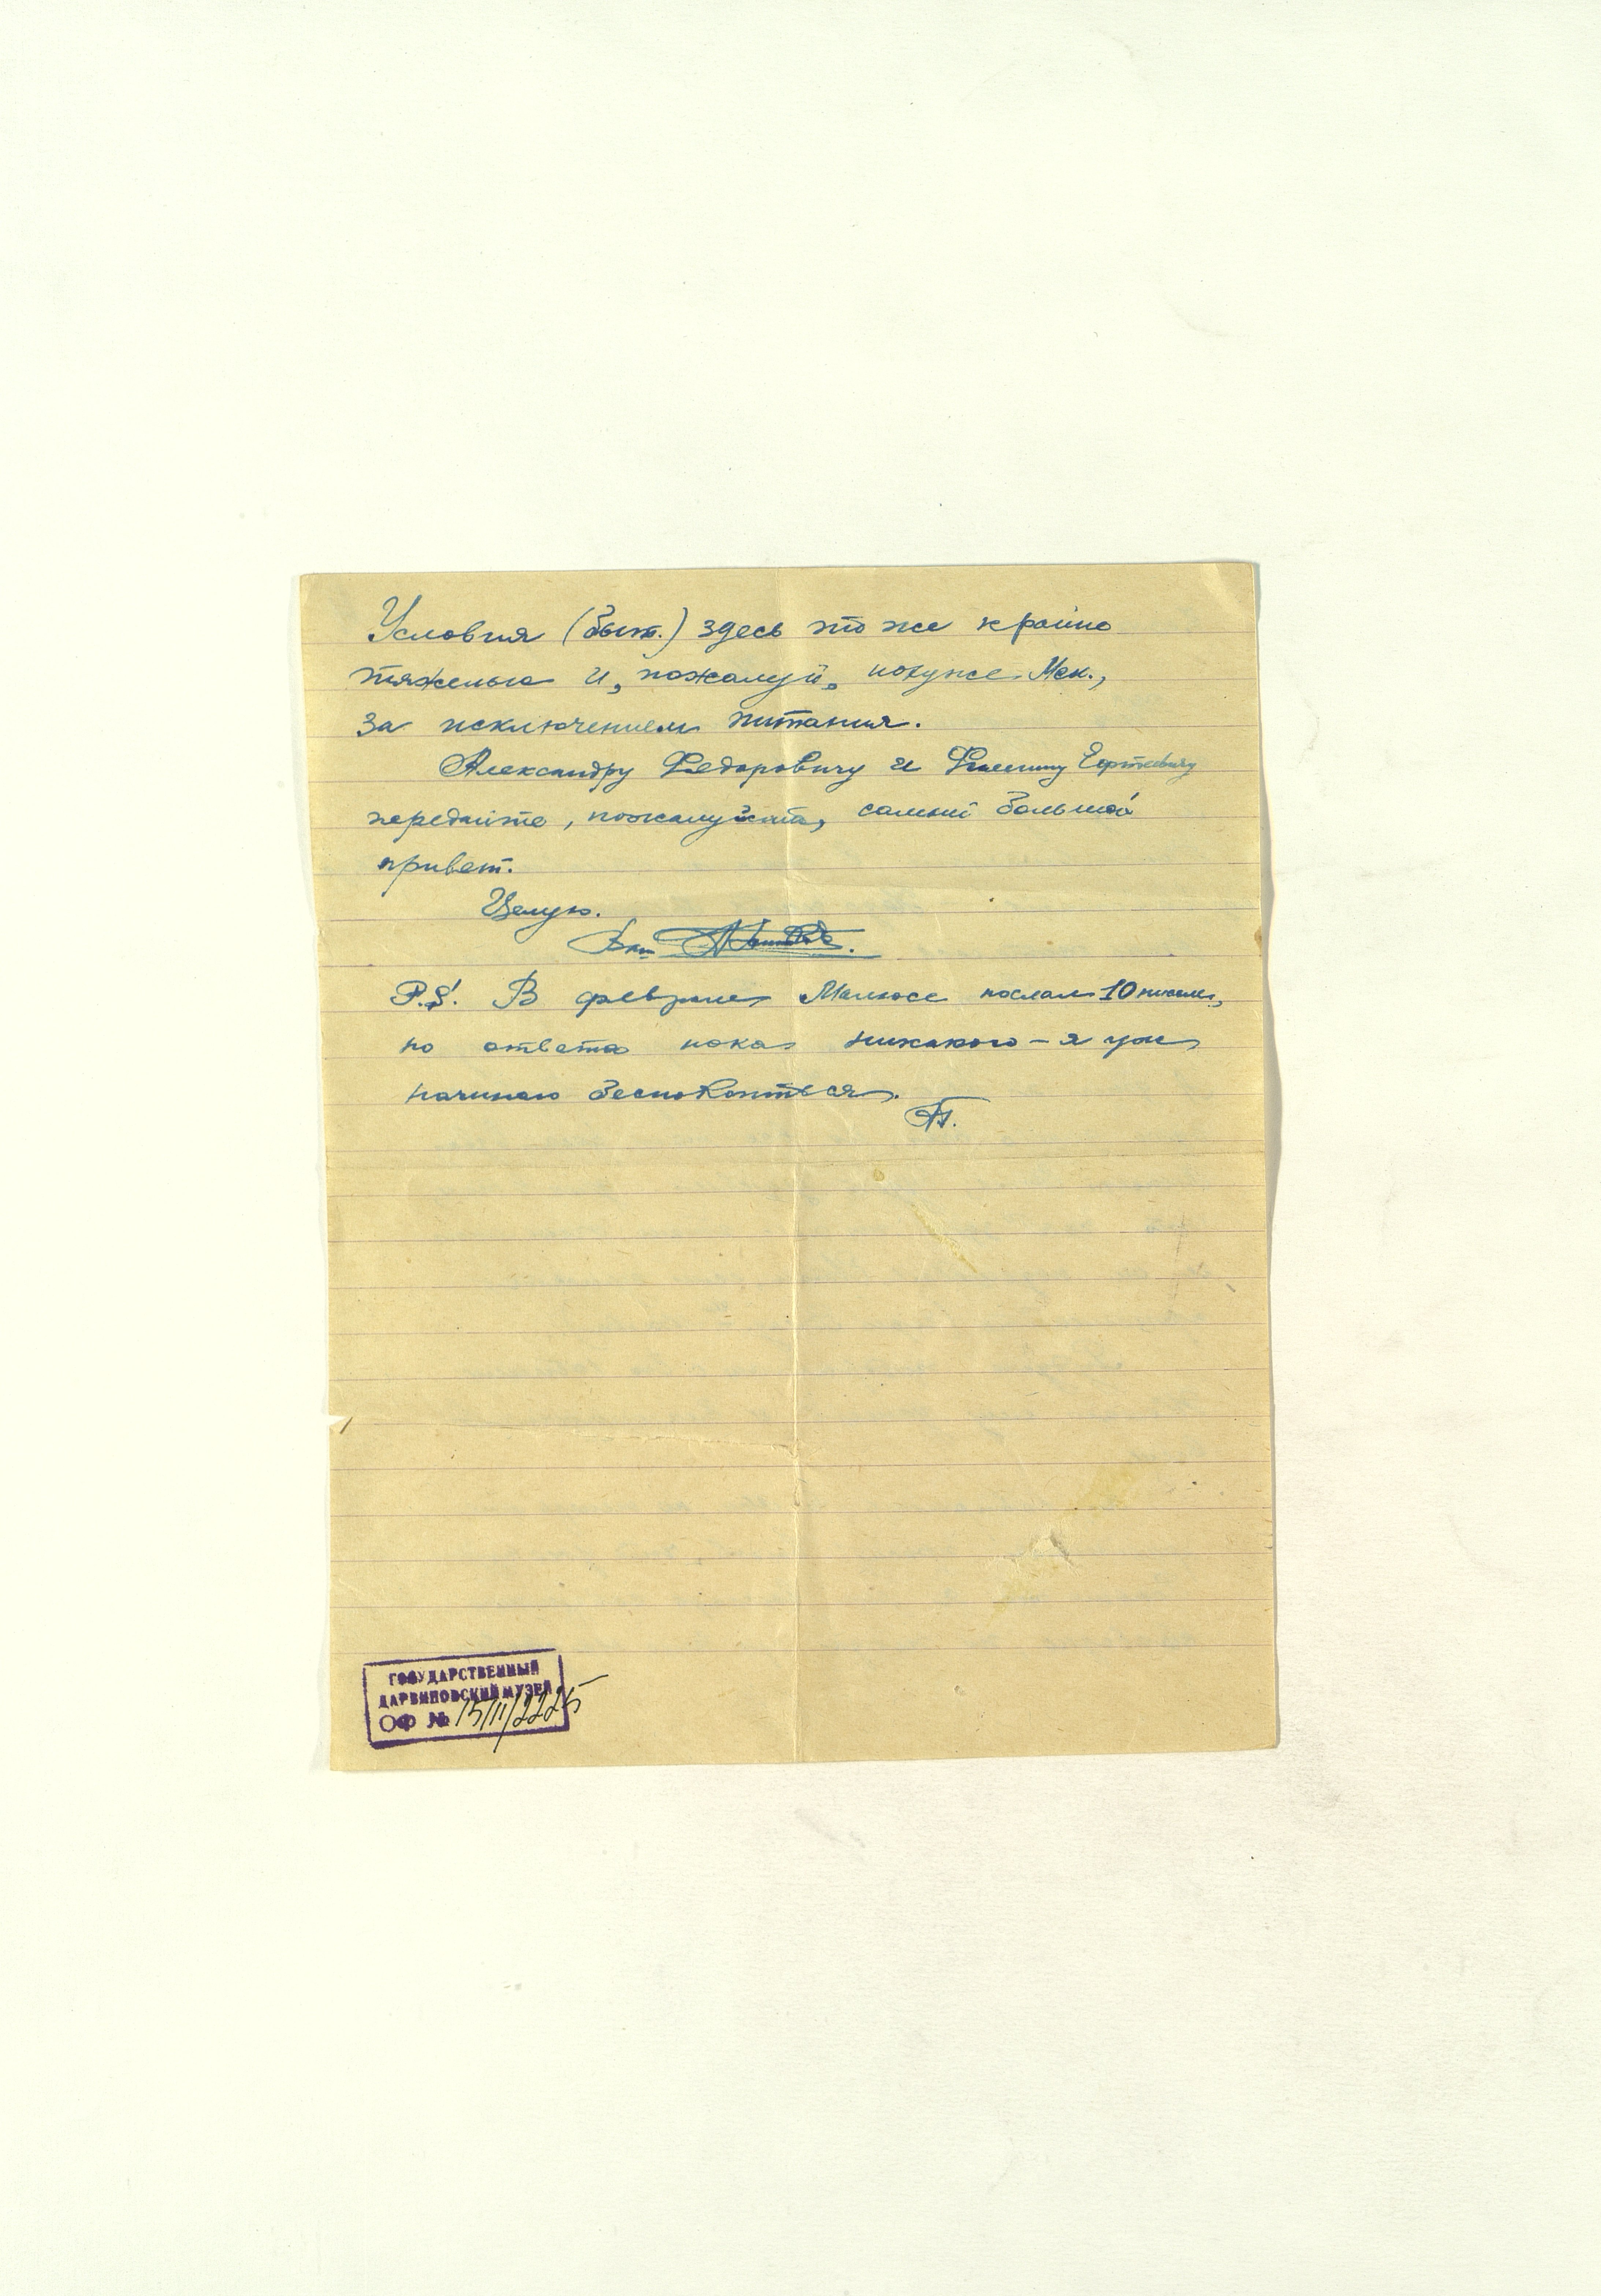 Условия (быт.) здесь то же крайно
тяжелые и, пожалуй, похуже Мск.,
за исключением питания.
Александру Федоровичу и Филиппу
передайте, пожалуйста, самый большой
привет.
Целую.
Ваш
P.S. В феврале Малюсе послал 10 писем,
но ответа пока никакого – я уж
начинаю беспокоиться.
П.
ГОСУДАРСТВЕННЫЙ
ДАРВИНОВСКИЙ МУЗЕЙ
ОФ № 15/11/2225